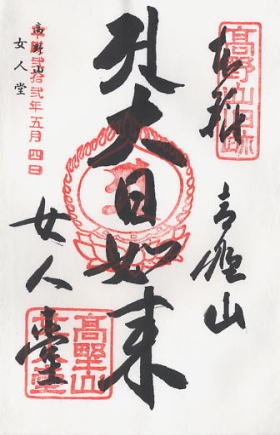 奉拝 高野山
高野山
大日如来
女人堂
高野山
女人堂
平成弐拾弐年五月四日
高野山
女人堂